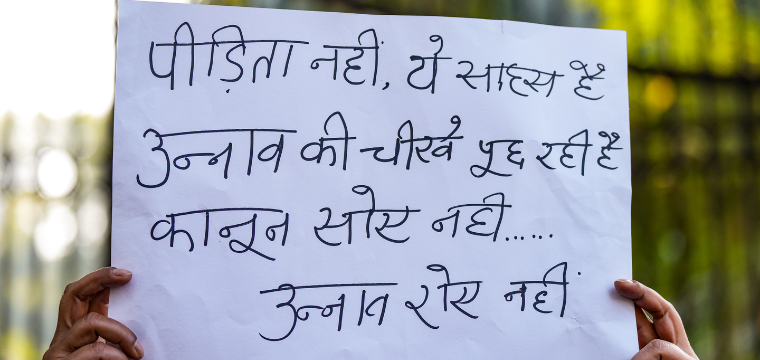 पीड़िता नहीं, ये साहस है
उन्नाव की चीखें पूछ रही है
कानून सोए नही......
उन्नाव रोए नहीं